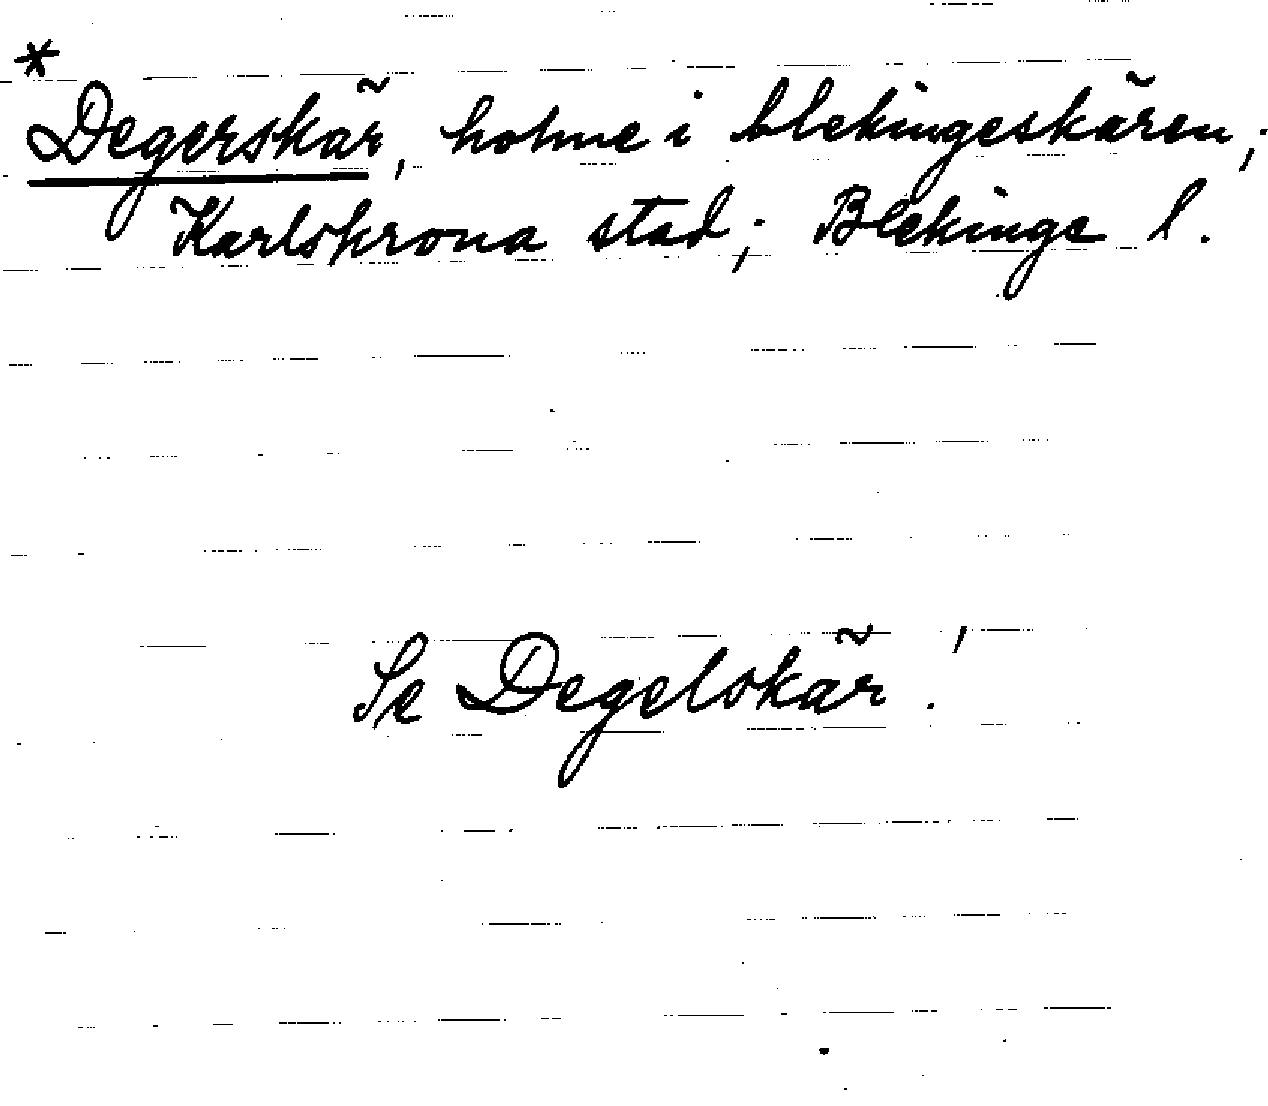 * Degerskär, holme i blekingeskären;
Karlskrona stad; Blekinge l.
Se Degelskär!